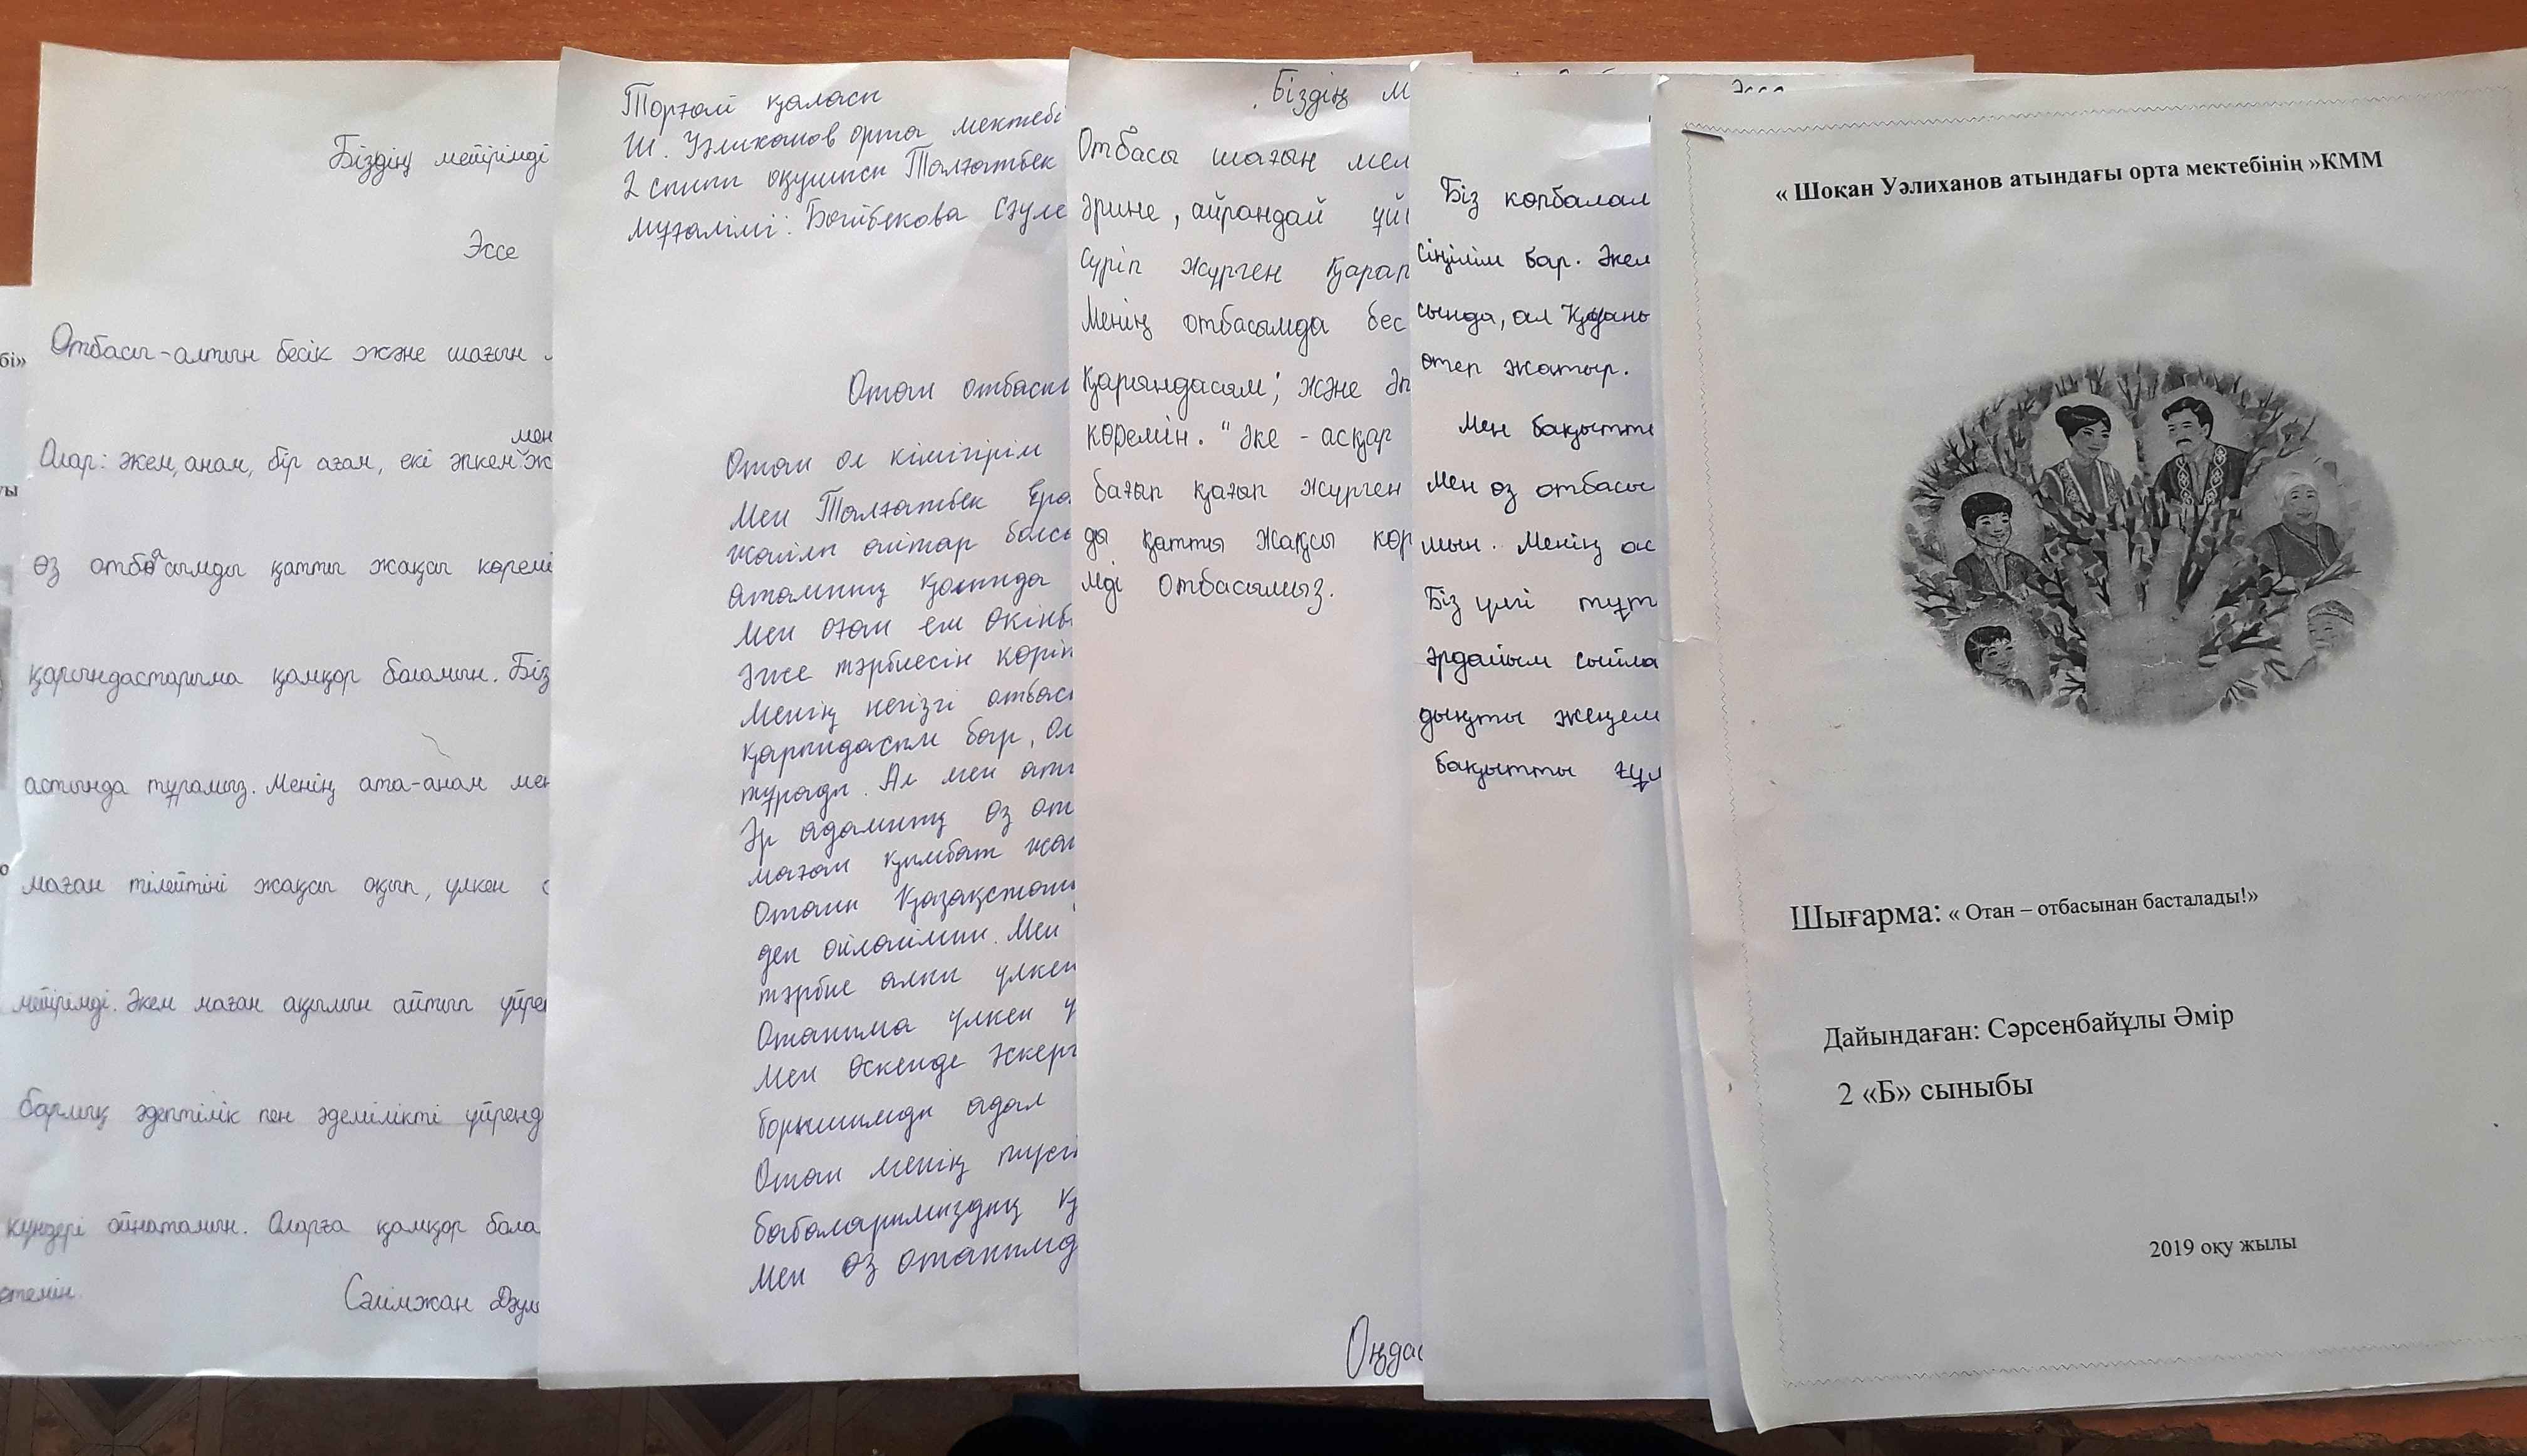 бі»
Біздің мейірімді
Эссе
Отбасы-алтын бесік және шағын
мен
Олар: әкем, анам, бір ағам, екі әпкем
өз отбасымды қатты жақсы көремі
қарындастарыма қамқор боламын. Біз
астында тұрамыз. Менің ата-анам мен
маған тілейтіні жақсы оқып, үлкен
мейірімді. Әкем маған ақылын айтып үйрет
барлық әдептілік пен әдемілікті үйренд
күндері ойнатамын. Оларға қамқор бола
етемін.
Сәлімжан Дәул
Торғай қаласы
Ш. Уәлиханов орта мектебі
2 сынып оқушысы Талғатбек
мұғалімі: Бегімбекова Сәуле
Отан отбасы
Отан ол кіміңгірім
Мен Талғатбек Ера
жайлы айтар болса
атамның қолында
Мен оған еш өкінб
Әже тәрбиесін көріп
Менің негізгі отбас
қарындасым бар, ол
тұрады. Ал мен ата
Әр адамның өз от
маған қымбат жа
Отаны Қазақстан
деп ойлаймын. Мен
тәрбие алып үлкен
Отаныма үлкен ү
Мен өскенде әскерг
борышымды адал
Отан менің тірегі
бабаларымыздың қ
Мен өз отанымд
Біздің м
Отбасы шағын мем
әрине, айрандай ұйы
сүріп жүрген қарап
Менің отбасымда бес
қарындасым; және әп
көремін. "Әке - асқар
бағып қағып жүрген
ды қатты жақсы көр
мді отбасымыз.
Оңдас
Біз көпбалал
сіңілім бар. Әкем
сында, ал Қуаны
өтеп жатыр.
Мен бақытты
Мен өз отбасы
мын. Менің ас
Біз үлгі тұт
әрдайым сыйла
дықты жеңем
бақытты ғұм
Эссе
« Шоқан Уәлиханов атындағы орта мектебінің »КММ
Шығарма: « Отан – отбасынан басталады!»
Дайындаған: Сәрсенбайұлы Әмір
2 «Б» сыныбы
2019 оқу жылы